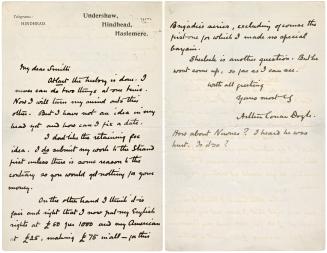 Telegrams:
HINDHEAD.
Undershaw,
Hindhead,
Haslemere.
My dear Smith
At last the history is done. I
never can do two things at one time.
Now I will turn my mind onto this
other. But I have not an idea in my
head yet and how can I fix a date.
I don't like the retaining fee
idea. I do submit my work to the Strand
first unless there is some reason to the
contrary so you would get nothing for your
money.
On the other hand I think it is
fair and right that I now put my English
rights at £50 per 1000 and my American
at £25, making £75 in all - for this
Brigadier series, excluding of course the
first one for which I made no special
bargain.
Sherlock is another question. But he
won't come up, so far as I can see.
With all greeting
Yours most
Arthur Conan Doyle.
How about Newnes? I heard he was
hurt. Is it so?